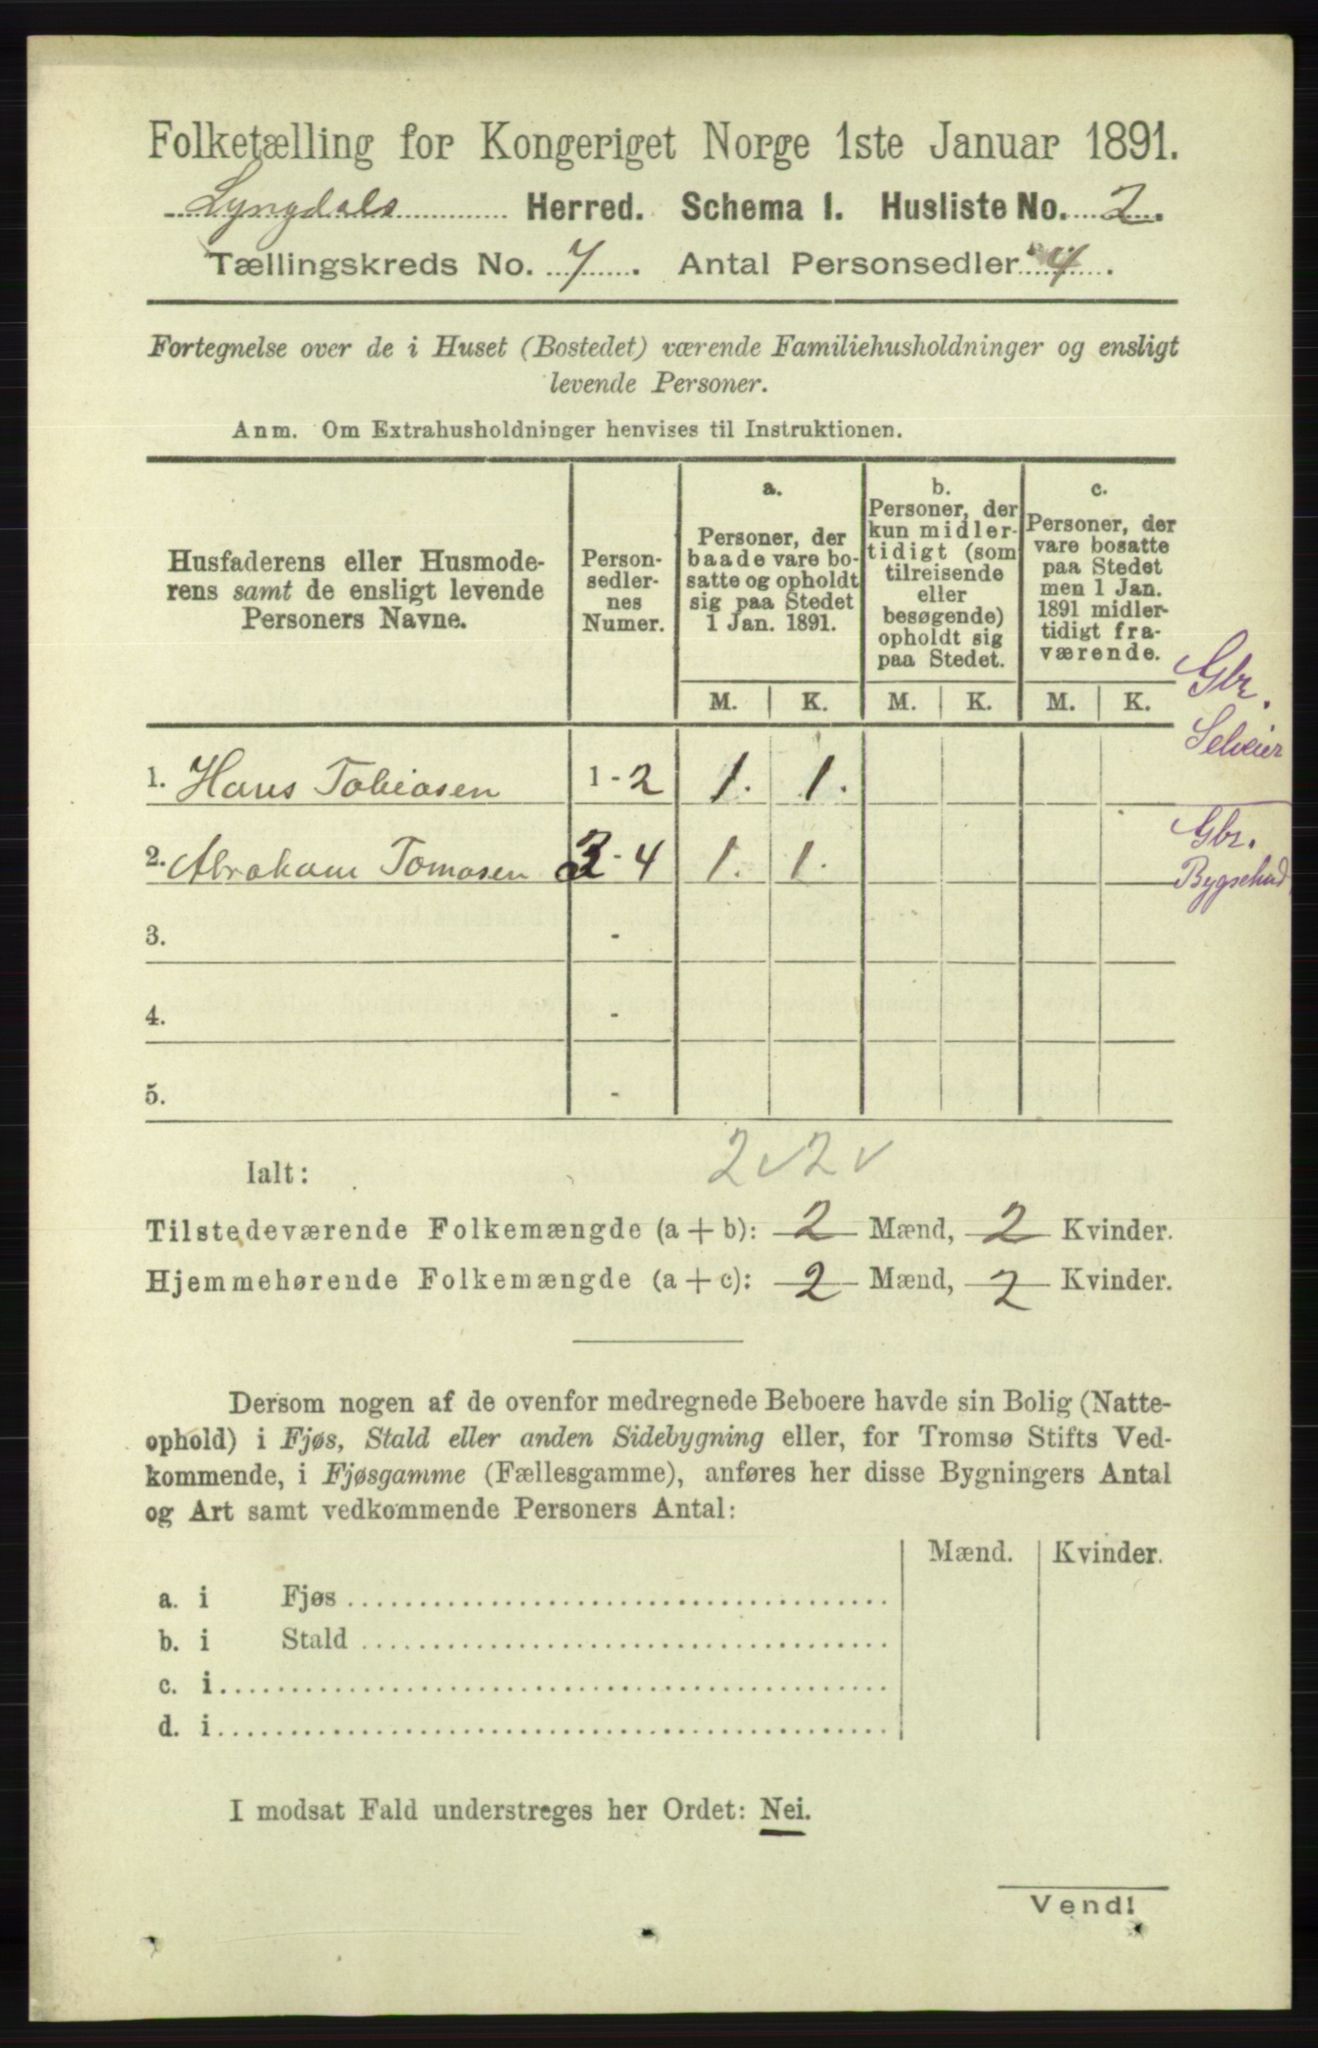 Folketælling for Kongeriget Norge 1ste Januar 1891.
Lyngdals Herred. Schema I. Husliste No. 2.
Tællingskreds No. 7. Antal Personsedler 4.
Fortegnelse over de i Huset (Bostedet) værende Familiehusholdninger og ensligt
levende Personer.
Anm. Om Extrahusholdninger henvises til Instruktionen.
Husfaderens eller Husmode-
rens samt de ensligt levende
Personers Navne.
Person-
sedler-
nes
Numer.
a.
Personer, der
baade vare bo-
satte og opholdt
sig paa Stedet
1 Jan. 1891.
b.
Personer, der
kun midler-
tidigt (som
tilreisende
eller
besøgende)
opholdt sig
paa Stedet.
c.
Personer, der
vare bosatte
paa Stedet
men 1 Jan.
1891 midler-
tidigt fra-
værende.
M. K. M. K. M. K.
Gbr.
Seleier
1. Hans Tobiasen 1 - 2 1. 1.
Gbr.
2. Abraham Tomasen 3 - 4 1. 1.
3. -
4. -
5. -
2 v 2 v
Ialt:
Tilstedeværende Folkemængde (a + b): 2 Mænd, 2 Kvinder.
Hjemmehørende Folkemængde (a + c): 2 Mænd, 2 Kvinder.
Dersom nogen af de ovenfor medregnede Beboere havde sin Bolig (Natte-
ophold) i Fjøs, Stald eller anden Sidebygning eller, for Tromsø Stifts Ved-
kommende, i Fjøsgamme (Fællesgamme), anføres her disse Bygningers Antal
og Art samt vedkommende Personers Antal:
Mænd. Kvinder.
a. i Fjøs
b. i Stald
c. i
d. i
I modsat Fald understreges her Ordet: Nei.
Vend!